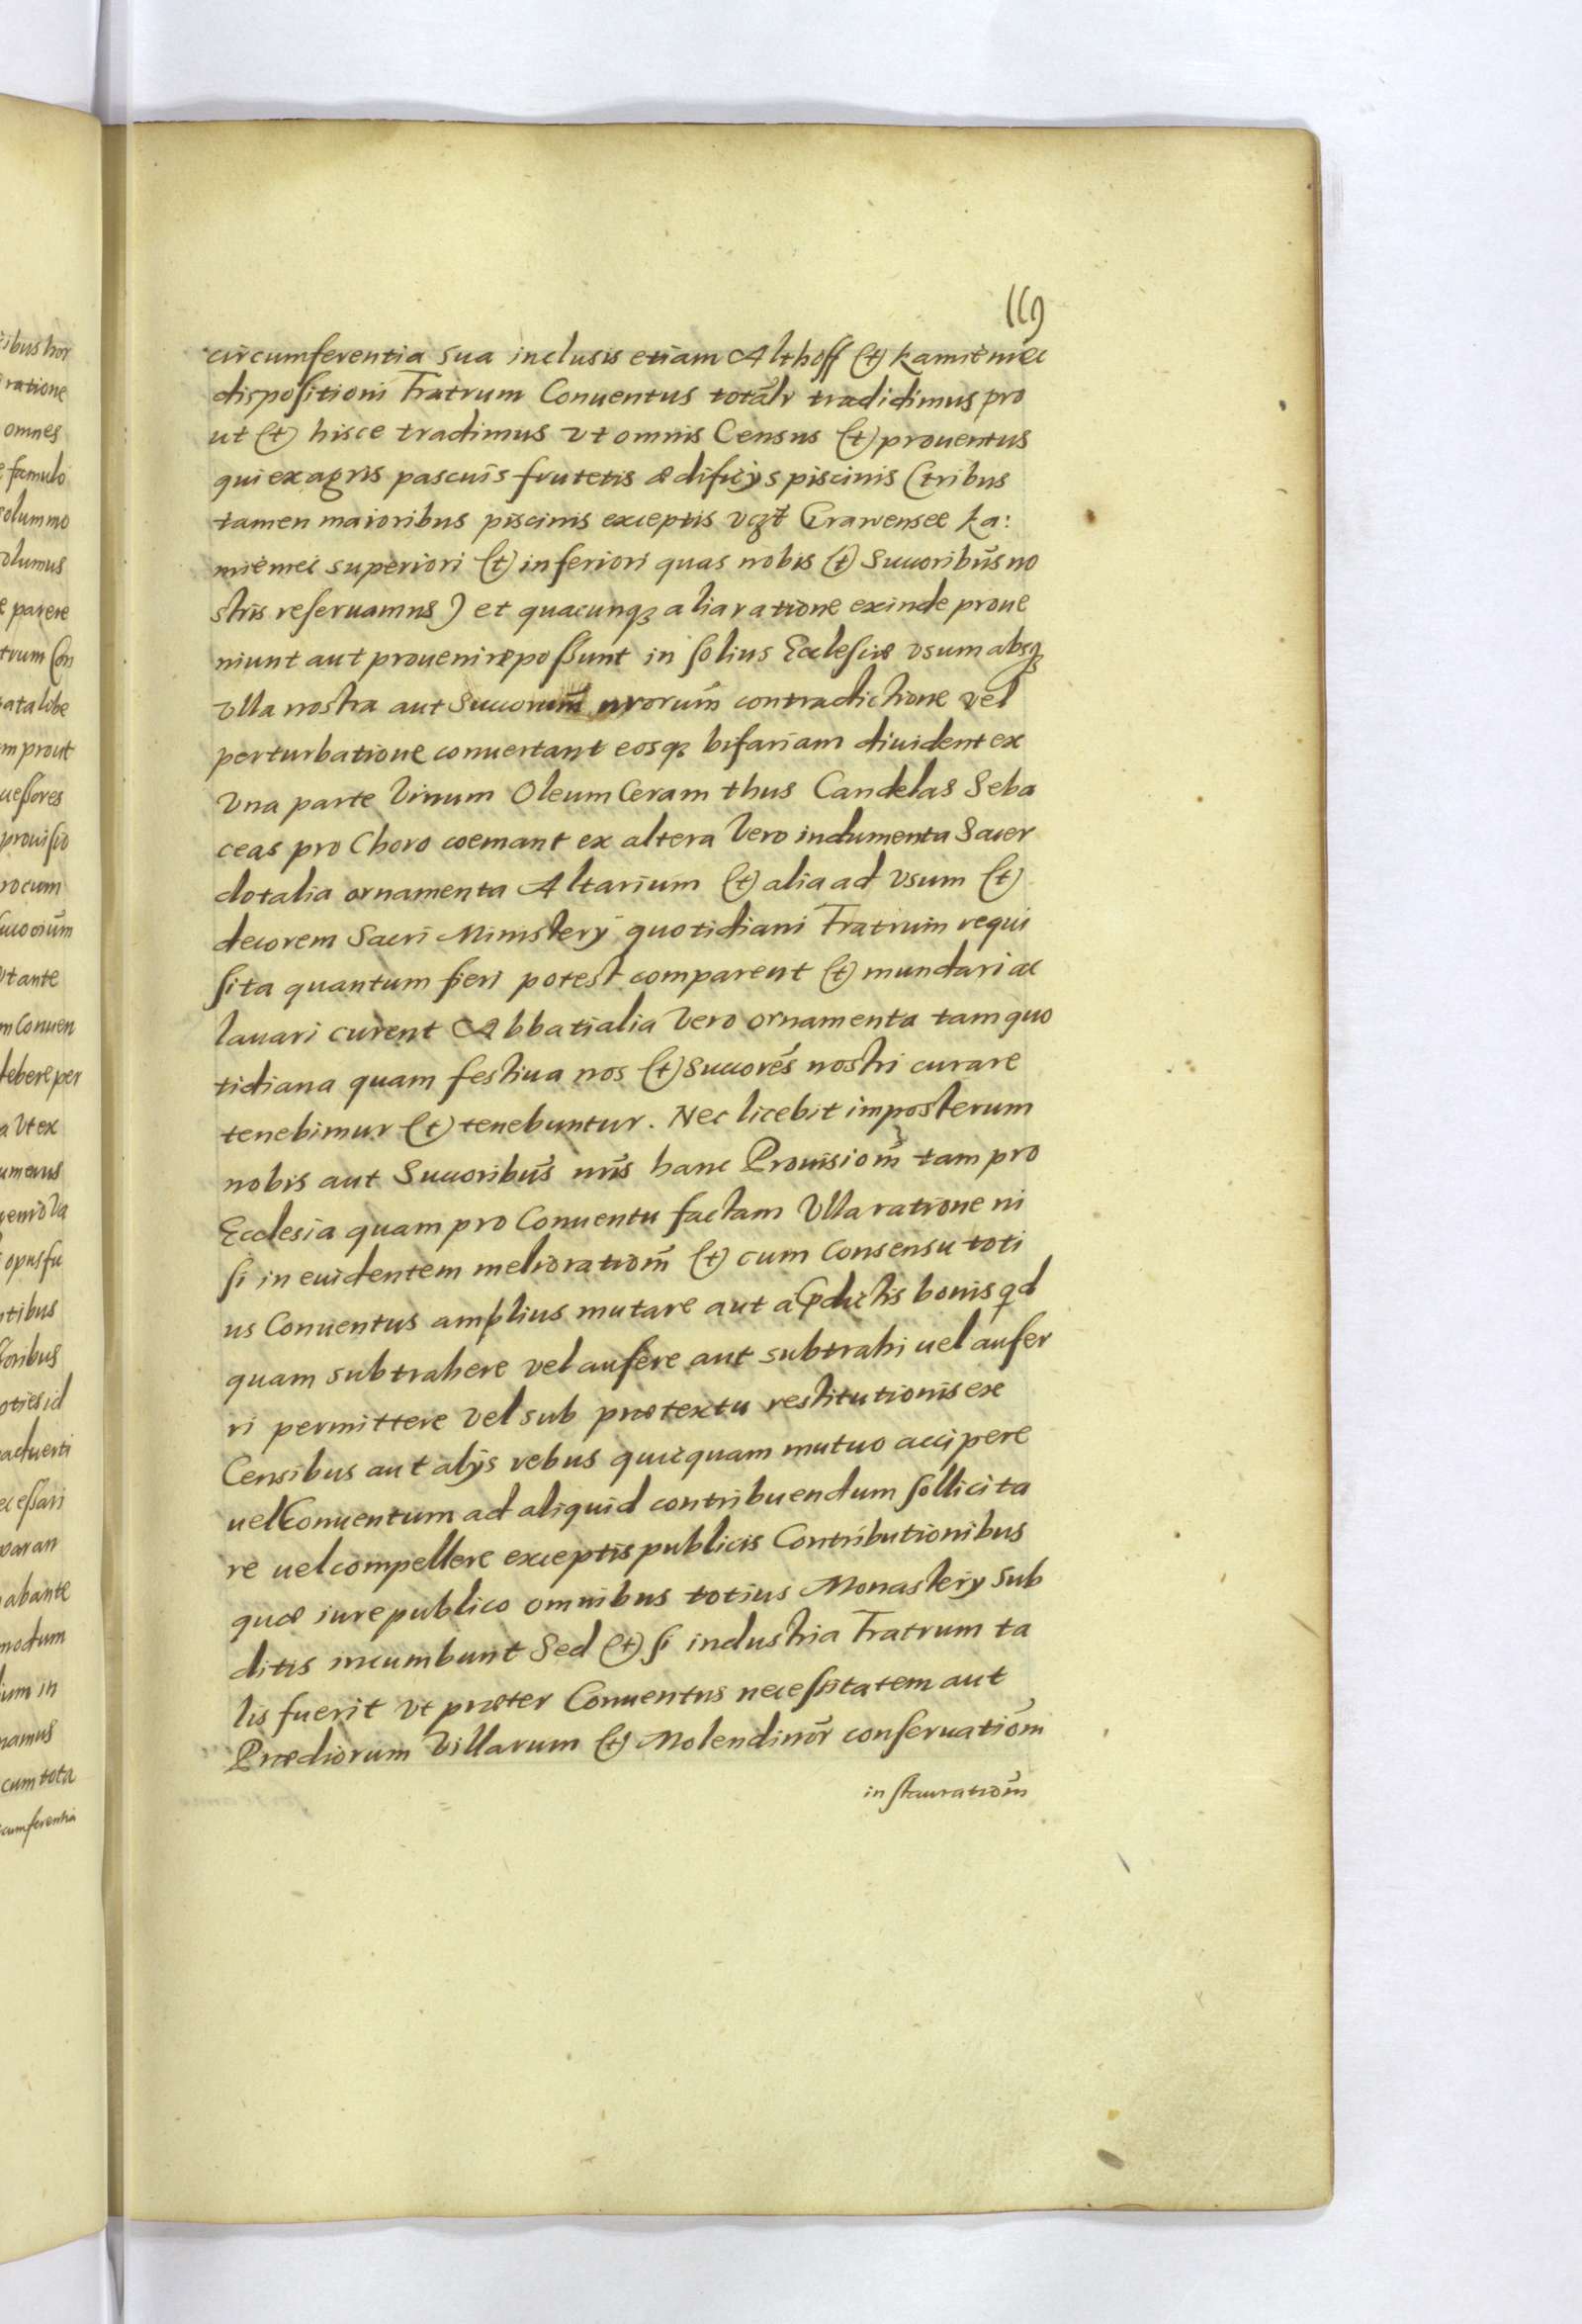 119
circumferentia sua inclusis etiam Althoff (et) Kamieniec
dispositioni Fratrum Conuentus totalr tradidimus pro
ut (et) hisce tradimus vt omnis Census (et) prouentus
qui ex agris pascuis frutetis ædificijs piscinis (tribus
tamen maioribus piscinis exceptis vczt Grawensee ka:
mieniei superiori (et) inferiori quas nobis (et) Succoribus no
stris reseruamus) et quacunq3 alia ratione exinde proue
niunt aut prouenire possunt in solius Ecclesiæ vsum absq3
vlla nostra aut Succorum nrorum contradictione vel
perturbatione conuertant eosq3 bifariam diuident ex
vna parte Vinum Oleum Ceram thus Candelas Seba
ceas pro Choro coemant ex altera Vero indumenta Sacer
dotalia ornamenta Altarium (et) alia ad vsum (et)
decorem Sacri Ministerij quotidiani Fratrum requi
sita quantum fieri potest comparent (et) mundari ac
lauari curent Abbatialia Vero ornamenta tam quo
tidiana quam festiua nos (et) Succores nostri curare
tenebimur (et) tenebuntur. Nec licebit imposterum
nobis aut Succoribus nris hanc Prouisiom tam pro
Ecclesia quam pro Conuentu factam Vlla ratione ni
si in euidentem melioratiom (et) cum Consensu toti
us Conuentus amplius mutare aut a Pdictis bonis qd
quam subtrahere vel aufere aut subtrahi uel aufer
ri permittere vel sub prætextu restitutionis ex
Censibus aut alijs rebus quicquam mutuo accipere
uel Conuentum ad aliquid contribuendum sollicita
re uel compellere exceptis publicis Contributionibus
quæ iure publico omnibus totius Monasterij sub
ditis incumbunt Sed (et) si industria Fratrum ta
lis fuerit vt præter Conuentus necessitatem aut
Prædiorum Villarum (et) Molendinor conseruatiom
instauratiom